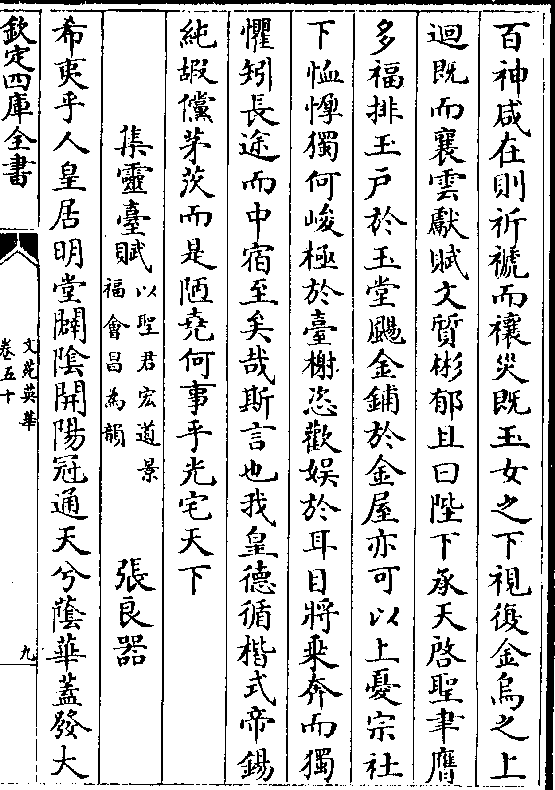 百神咸在則祈禠而禳災既玉女之下視復金烏之上
迴既而襄雲獻賦文質彬郁且曰陛下承天啓聖聿膺
多福排玉戸於玉堂颺金鋪於金屋亦可以上憂宗社
下恤惸獨何峻極於臺榭恣歡娱於耳目將乗奔而獨
懼矧長途而中宿至矣哉斯言也我皇徳循楷式帝錫
純嘏儻茅茨而是陋堯何事乎光宅天下
集靈臺賦 以聖君宏道景福會昌為韻 張良器
希夷乎人皇居明堂闢陰開陽冠通天兮蔭華蓋發大
欽定四庫全書
文苑英華
卷五十
九